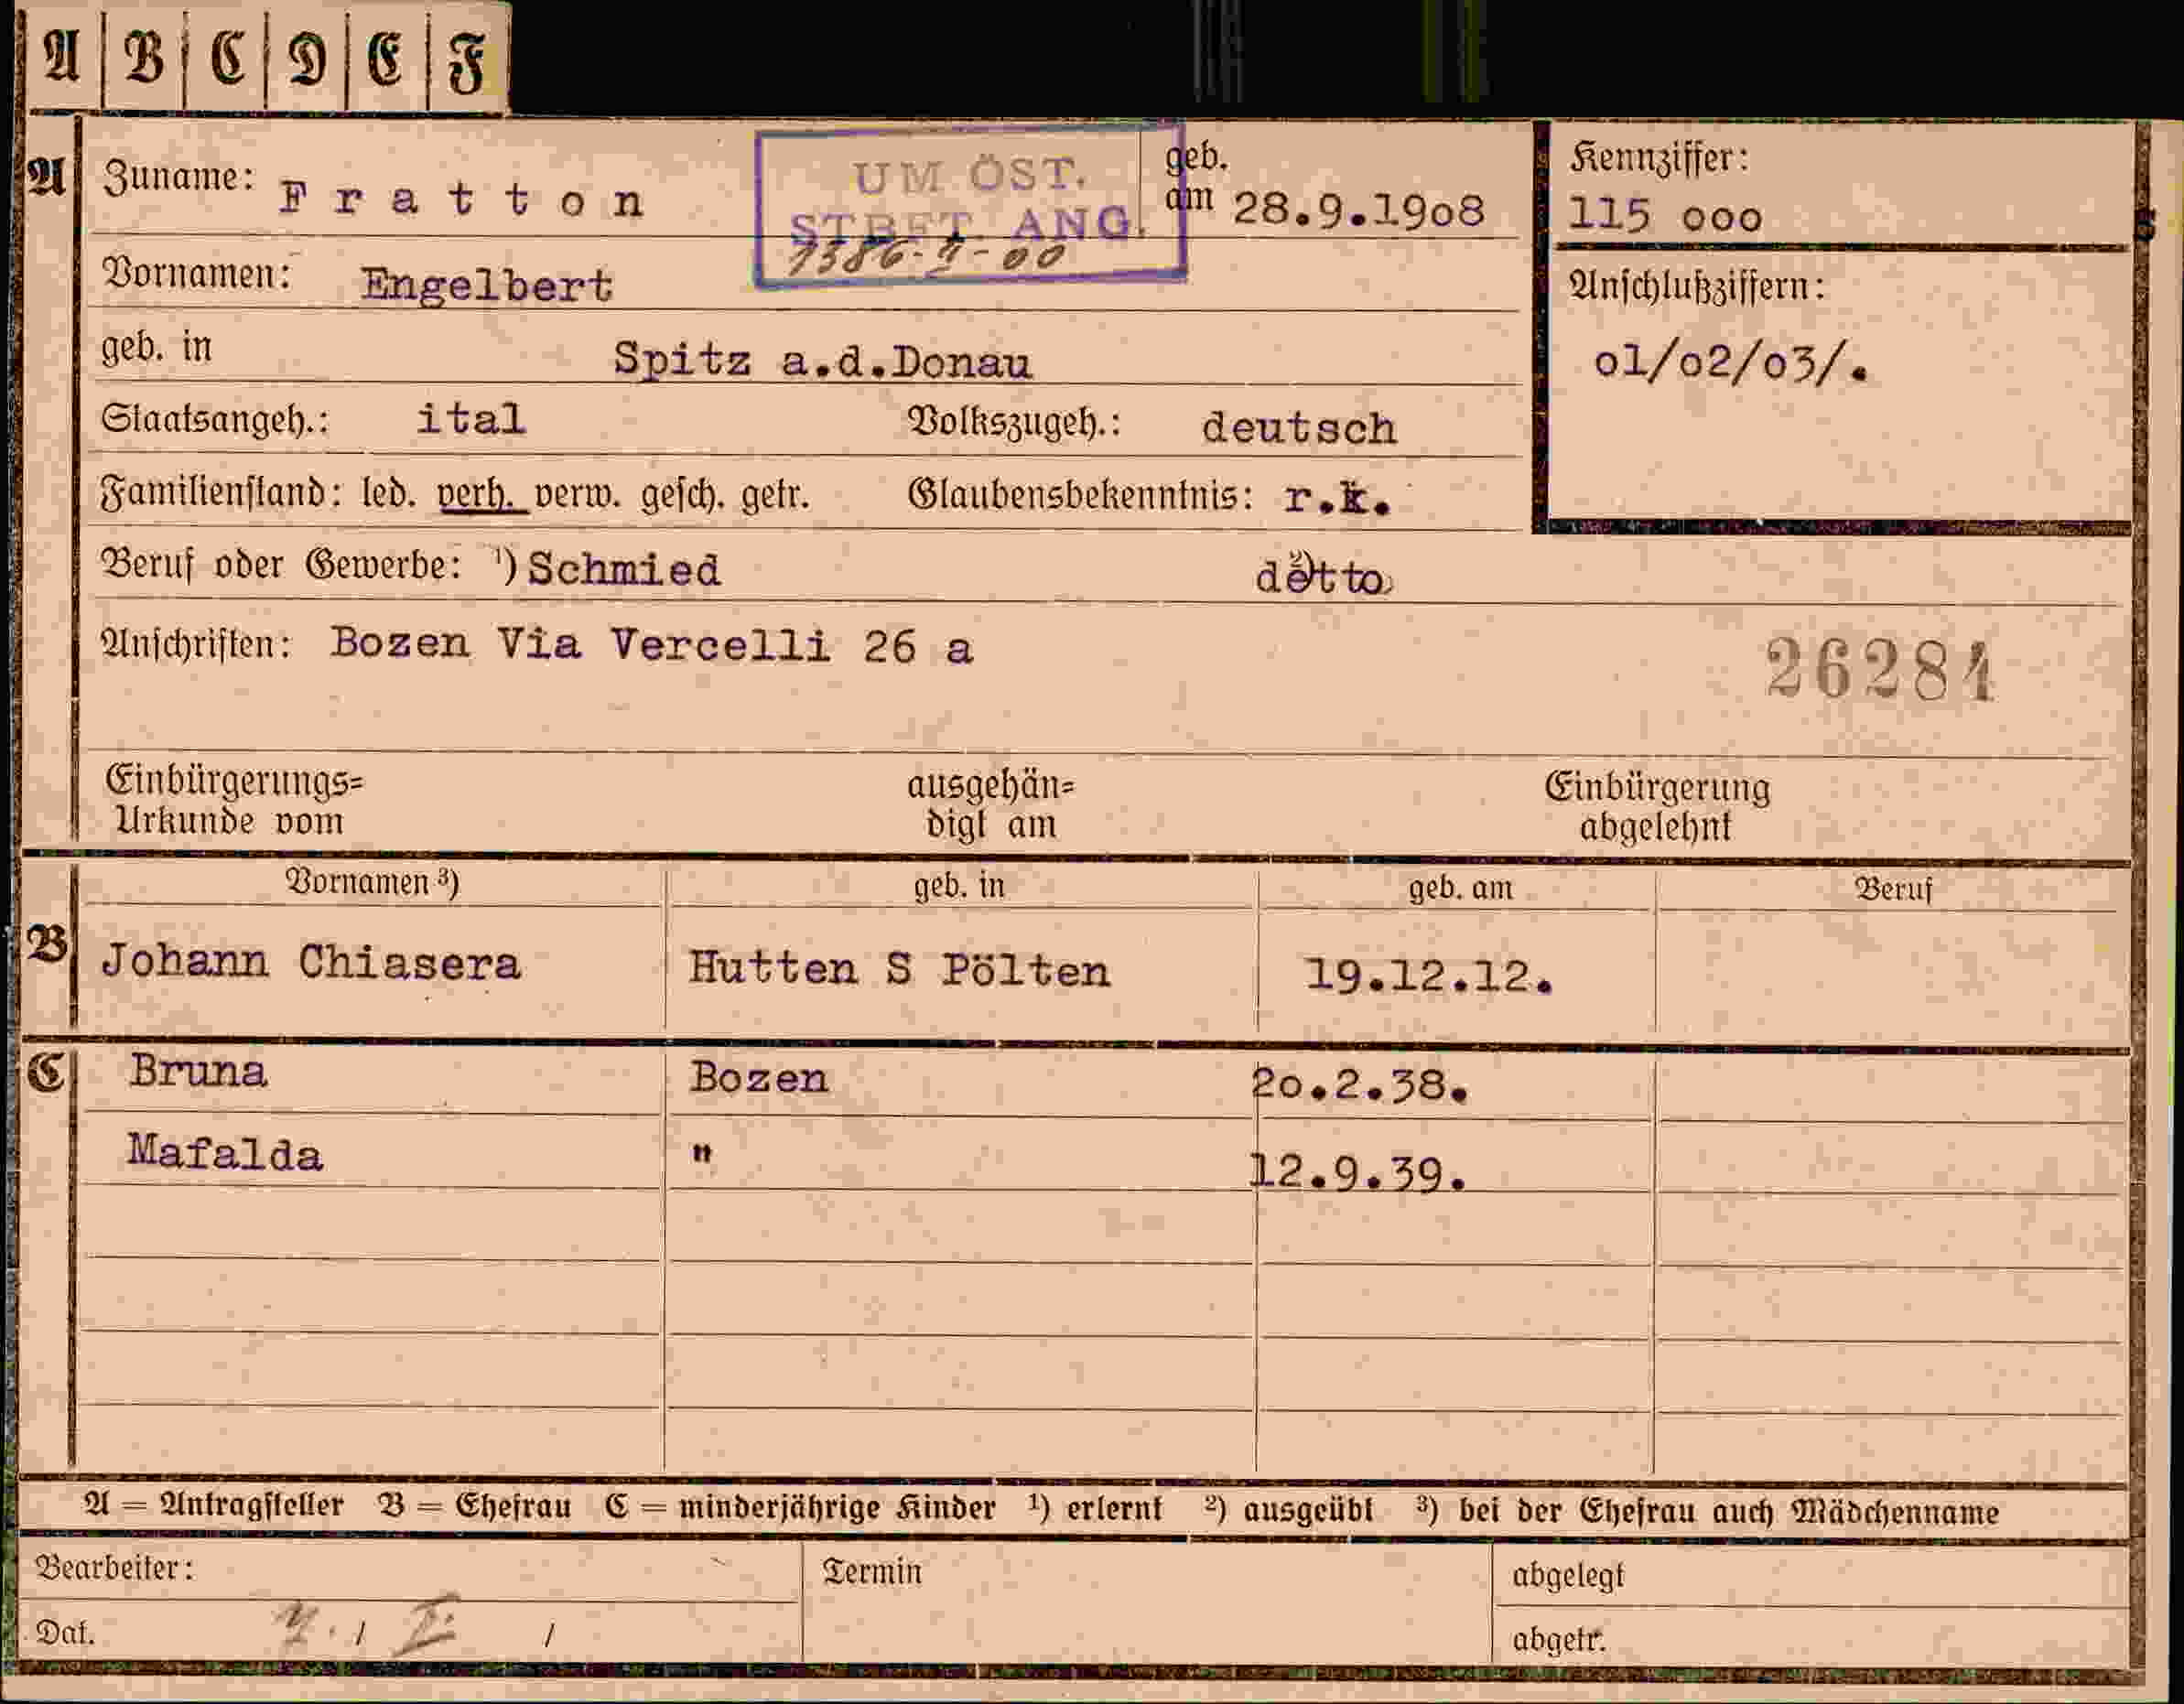 A B C D E F
A Zuname: Fratton
UM ÖST.
STBFT. ANG.
geb. am 28.9.1908
Kennziffer:
115 000
Vornamen: Engelbert
Anschlußziffern:
01/02/03/.
geb. in Spitz a.d.Donau
Staatsangeh.: ital Volkszugeh.: deutsch
Familienstand: led. verh. verw. gesch. getr. Glaubensbekenntnis: r.k.
Beruf oder Gewerbe: ¹) Schmied ²) detto
Anschriften: Bozen Via Vercelli 26 a
26281
Einbürgerungs=
Urkunde vom
ausgehän=
digt am
Einbürgerung
abgelehnt
Vornamen ³) geb. in geb. am Beruf
B Johann Chiasera Hutten S Pölten 19.12.12.
C Bruna Bozen 20.2.38.
Mafalda " 12.9.39.
A = Antragsteller B = Ehefrau C = minderjährige Kinder ¹) erlernt ²) ausgeübt ³) bei der Ehefrau auch Mädchenname
Bearbeiter: Termin abgelegt
Dat. abgetr.